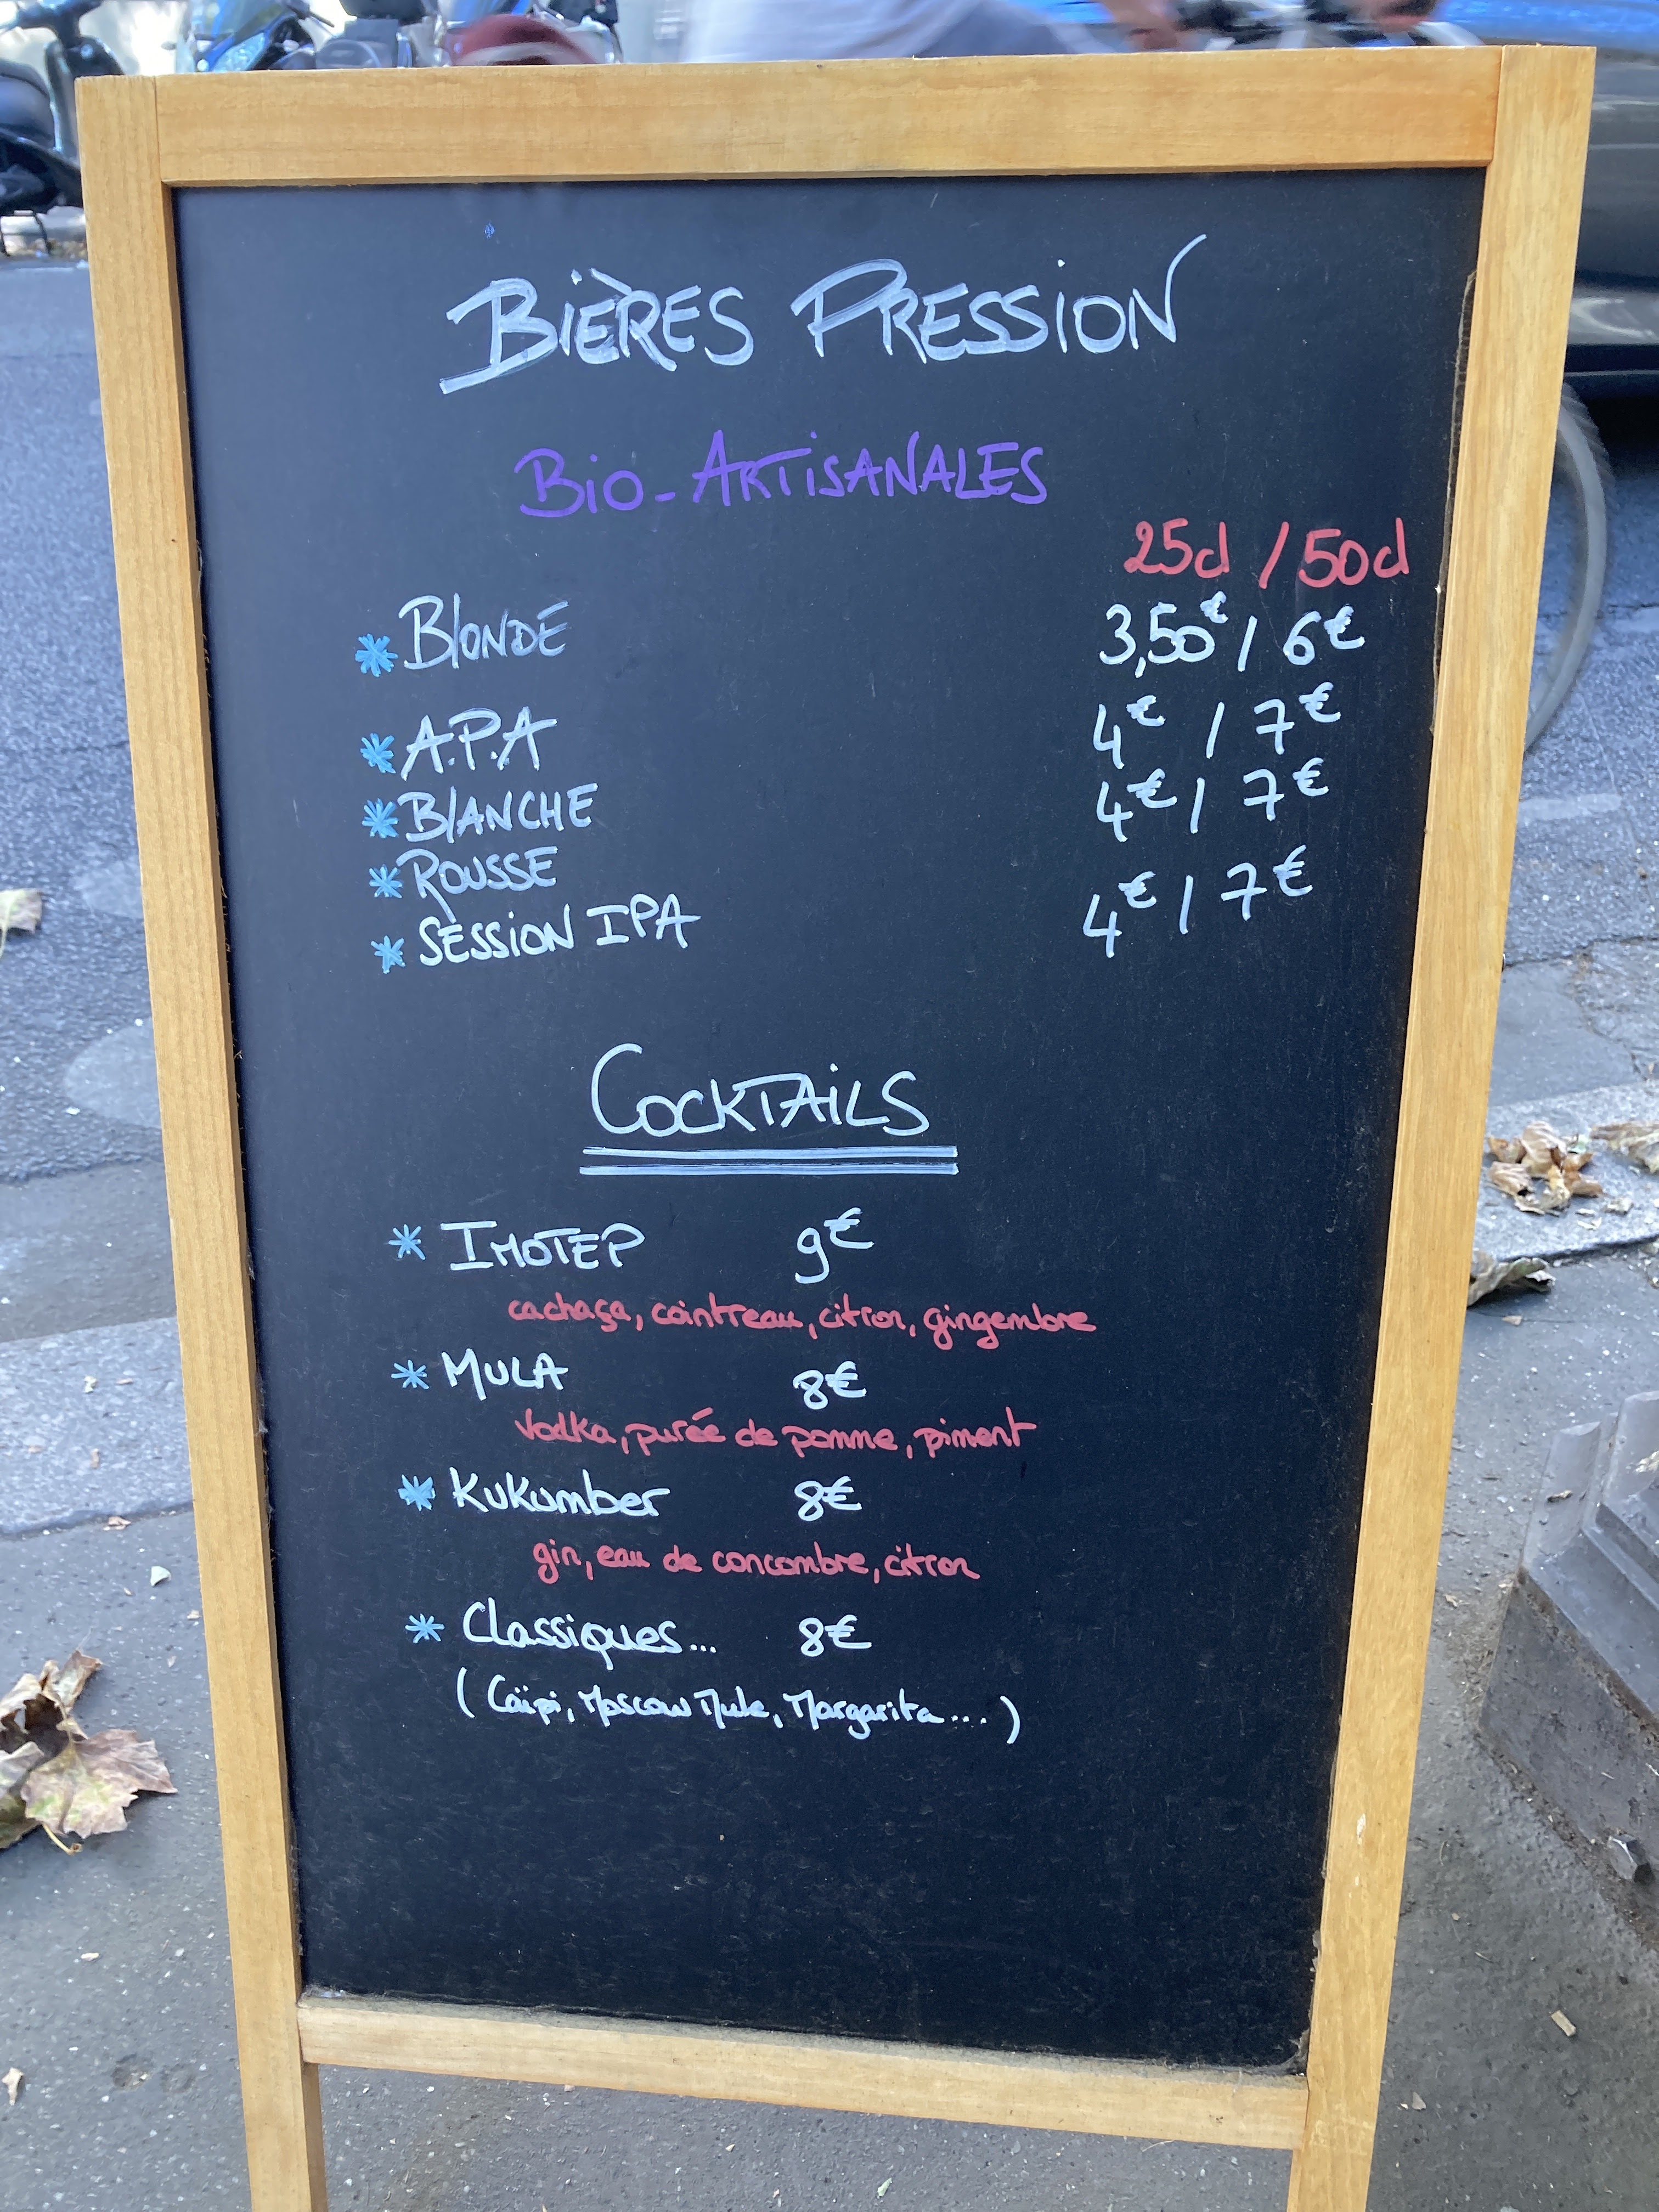 BIÈRES PRESSION
BIO-ARTISANALES
25cl / 50cl
* BLONDE 3,50€ / 6€
* A.P.A 4€ / 7€
* BLANCHE 4€ / 7€
* ROUSSE
* SESSION IPA 4€ / 7€
COCKTAILS
* IMOTEP 9€
cachaça, cointreau, citron, gingembre
* MULA 8€
Vodka, purée de pomme, piment
* KuKumber 8€
gin, eau de concombre, citron
* Classiques... 8€
(Caïpi, Moscow Mule, Margarita....)